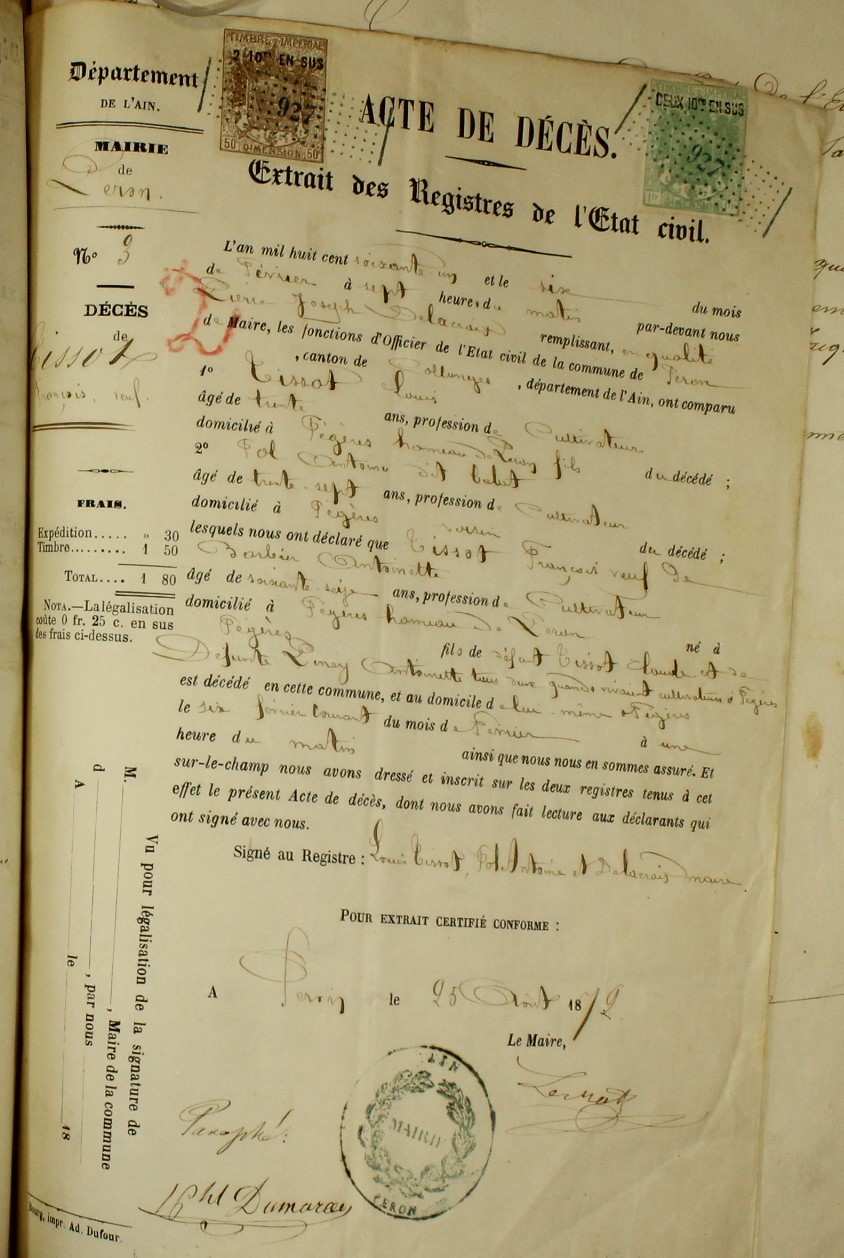 Département
DE L'AIN.
MAIRIE
de
Peron.
N° 3
DÉCÈS
de
Tissot
François, veuf.
FRAIS.
Expédition..... " 30
Timbre......... 1 50
TOTAL.... 1 80
NOTA.—La légalisation
coûte 0 fr. 25 c. en sus
des frais ci-dessus.
TIMBRE IMPERIAL
2 10mes EN SUS
927
50 DIMENSION 50
DEUX 10mes EN SUS
927
ACTE DE DÉCÈS.
Extrait des Registres de l'Etat civil.
L'an mil huit cent soixante un et le six du mois
de Février à sept heures du matin par-devant nous
Pierre Joseph Delacrais remplissant, en qualité
de Maire, les fonctions d'Officier de l'Etat civil de la commune de Peron
, canton de Collonges, département de l'Ain, ont comparu
1° Tissot Louis
âgé de trente ans, profession de Cultivateur
domicilié à Pégères hameau de Peron fils du décédé ;
2° Pol Antoine dit
âgé de trente-sept ans, profession de Cultivateur
domicilié à Pégères voisin du décédé ;
lesquels nous ont déclaré que Tissot François veuf de
Barbier Antoinette
âgé de soixante-seize ans, profession de Cultivateur
domicilié à Pégères hameau de Peron né à
Pégères fils de défunt Tissot Claude et de
Defunte Antoinette tous deux quand vivaient cultivateurs à Pégères
est décédé en cette commune, et au domicile de lui-même à Pégères
le six février courant du mois de Février à une
heure du matin ainsi que nous nous en sommes assuré. Et
sur-le-champ nous avons dressé et inscrit sur les deux registres tenus à cet
effet le présent Acte de décès, dont nous avons fait lecture aux déclarants qui
ont signé avec nous.
Signé au Registre : Louis Tissot, Pol Antoine et Delacrais maire.
POUR EXTRAIT CERTIFIÉ CONFORME :
A Peron le 25 Août 1872
Le Maire,
AIN
MAIRIE
PERON
Paraphé :
Vu pour légalisation de la signature de
M. , Maire de la commune
d , par nous
A le 18
Bourg, impr. Ad. Dufour.